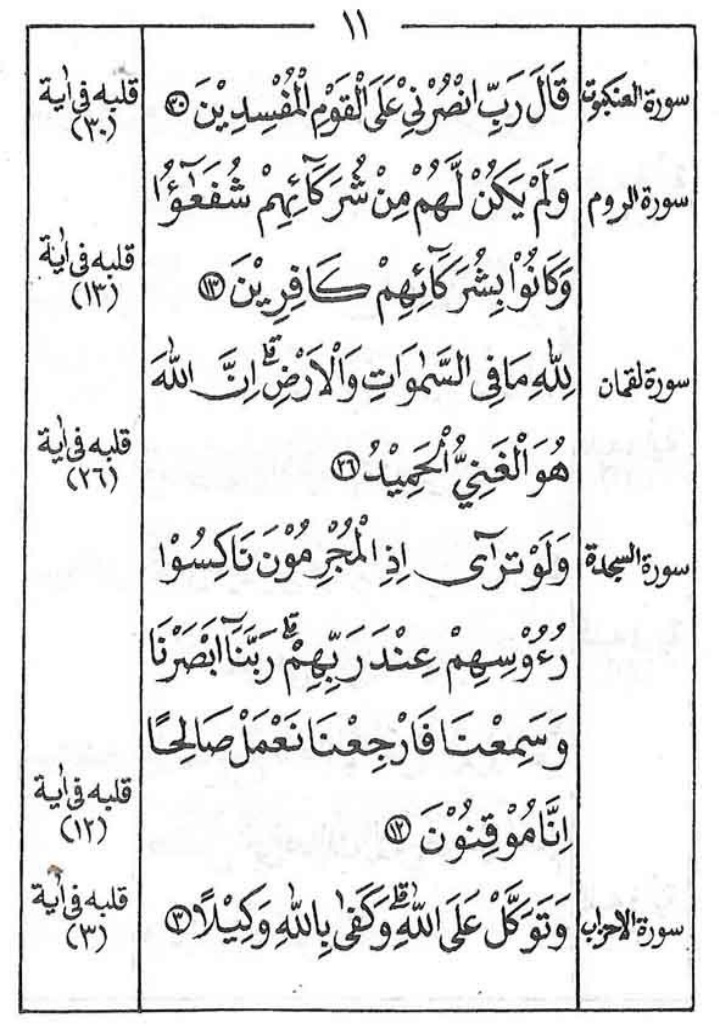 ١١
سورة العنكبوت قَالَ رَبِّ انْصُرْنِيْ عَلَى الْقَوْمِ الْمُفْسِدِيْنَ ٣٠ قلبه فى أية
(٣٠)
سورة الروم وَلَمْ يَكُنْ لَّهُمْ مِنْ شُرَكَآئِهِمْ شُفَعٰٓؤُا
وَكَانُوْا بِشُرَكَآئِهِمْ كَافِرِيْنَ ١٣ قلبه فى أية
(١٣)
سورة لقمان لِلّٰهِ مَا فِى السَّمٰوَاتِ وَالْاَرْضِ ۗ اِنَّ اللّٰهَ
هُوَ الْغَنِيُّ الْحَمِيْدُ ٢٦ قلبه فى أية
(٢٦)
سورة السجدة وَلَوْ تَرَآى اِذِ الْمُجْرِمُوْنَ نَاكِسُوْا
رُءُوْسِهِمْ عِنْدَ رَبِّهِمْ ۗ رَبَّنَآ اَبْصَرْنَا
وَسَمِعْنَا فَارْجِعْنَا نَعْمَلْ صَالِحًا
اِنَّا مُوْقِنُوْنَ ١٢ قلبه فى أية
(١٢)
سورة الاحزاب وَتَوَكَّلْ عَلَى اللّٰهِ ۗ وَكَفٰى بِاللّٰهِ وَكِيْلًا ٣ قلبه فى أية
(٣)